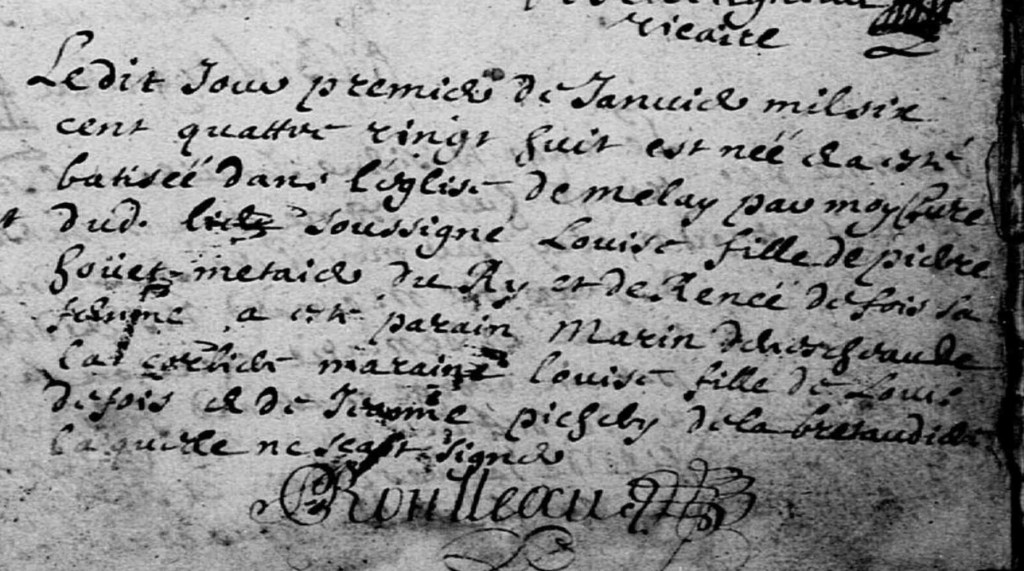 vicaire
Ledit Jour premier de Januier mil six
cent quattre vingt huit est néé et a esté
batiséé dans l'églisé de melay par moy Curé
dud. lieu soussigne Louise fille de pierre
hoüet metaier du Ry et de Renéé defois sa
femme a esté parain Marin
la maraine louise fille de Louis
defois et de picheby de la bretaudiere
laquelle ne scait signer
Roulleau